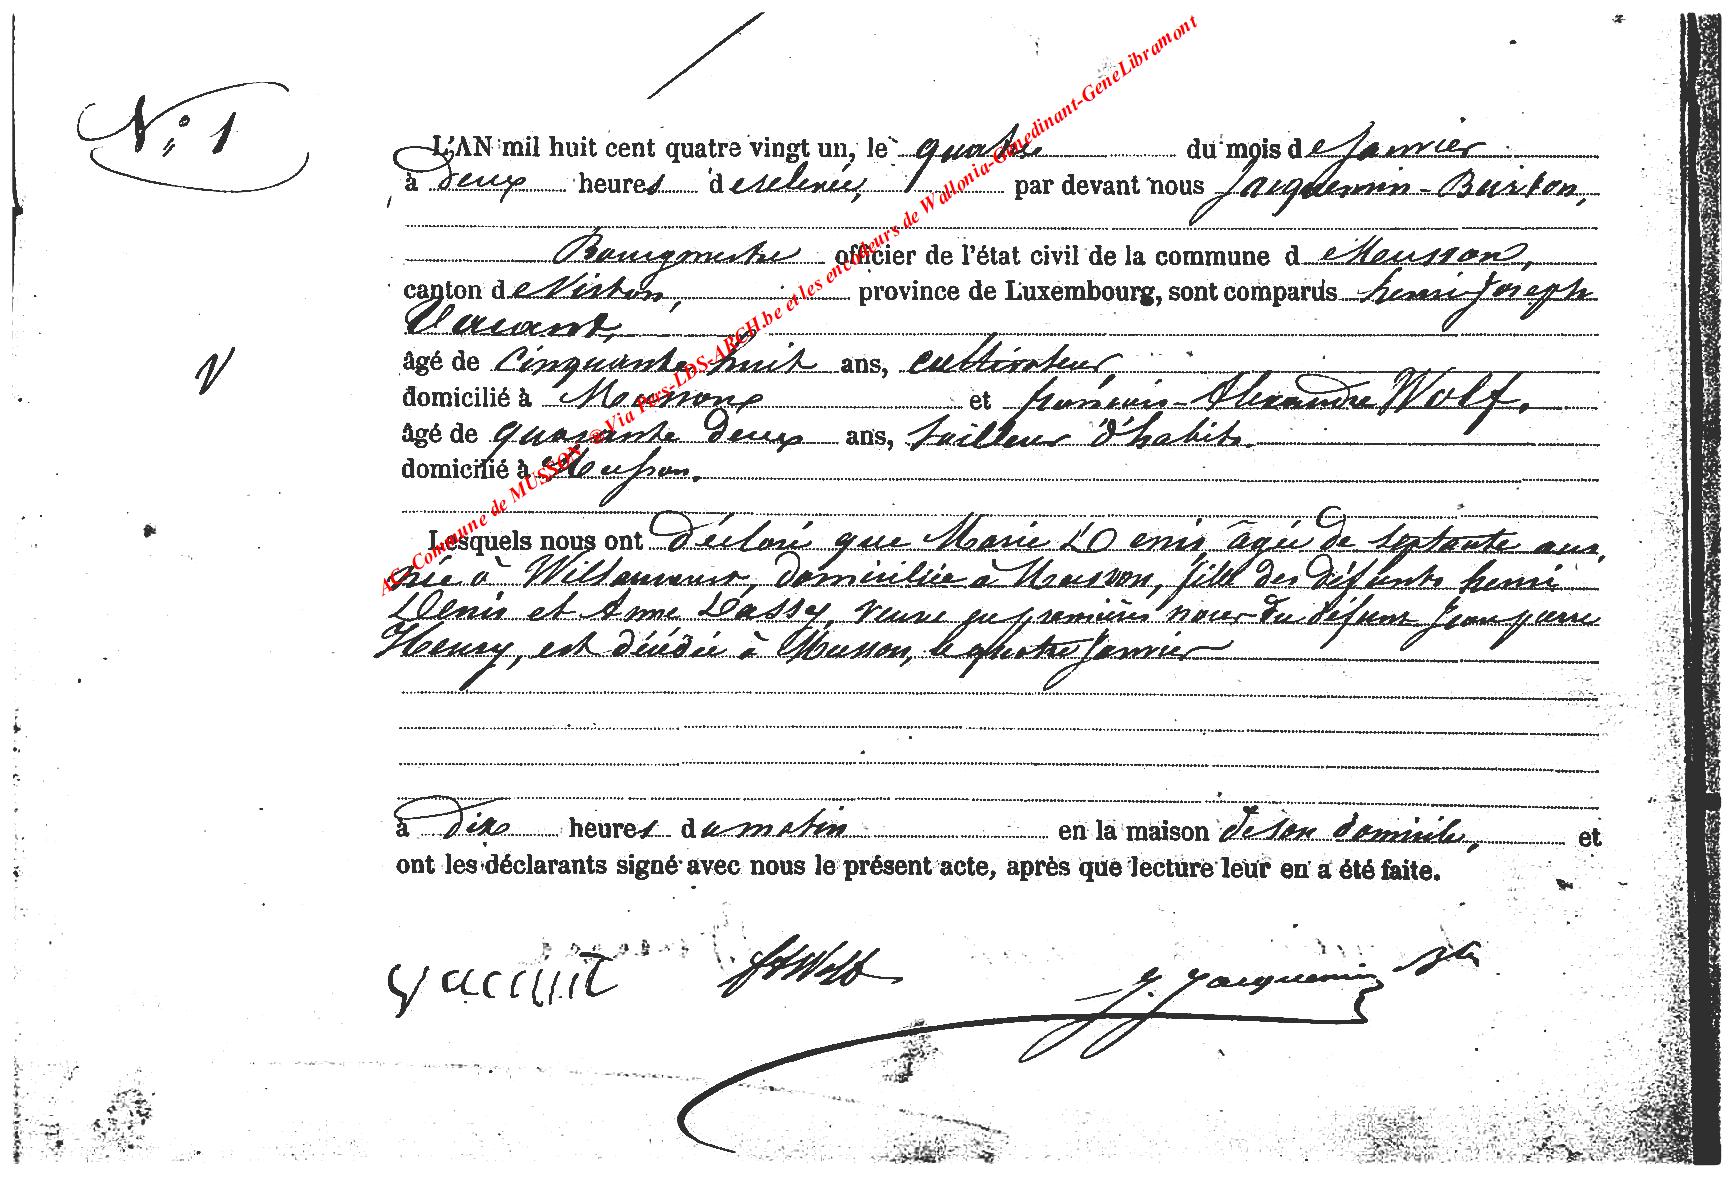 N° 1
L'AN mil huit cent quatre vingt un, le quatre du mois de Janvier
à deux heures de relevée, par devant nous Jacquemin-Burton,
Bourgmestre officier de l'état civil de la commune de Musson,
canton de Virton, province de Luxembourg, sont comparus henri Joseph
âgé de cinquante huit ans, cultivateur,
domicilié à Musson et françois-Alexandre Wolf,
âgé de quarante deux ans, tailleur d'habits.
domicilié à Musson.
Lesquels nous ont déclaré que Marie Denis âgée de septante ans,
née à Willancourt, domiciliée à Musson, fille des défunts henri
Denis et Anne Dassy, veuve en premières noces du défunt Jean pierre
Henry, est décédée à Musson, le quatre Janvier
à dix heures du matin en la maison de son domicile, et
ont les déclarants signé avec nous le présent acte, après que lecture leur en a été faite.
J. Jacquemin Btn
AC-Commune de MUSSON @Via Pers-LDS-ARCH.be et les encodeurs de Wallonia-Genedinant-GeneLibramont